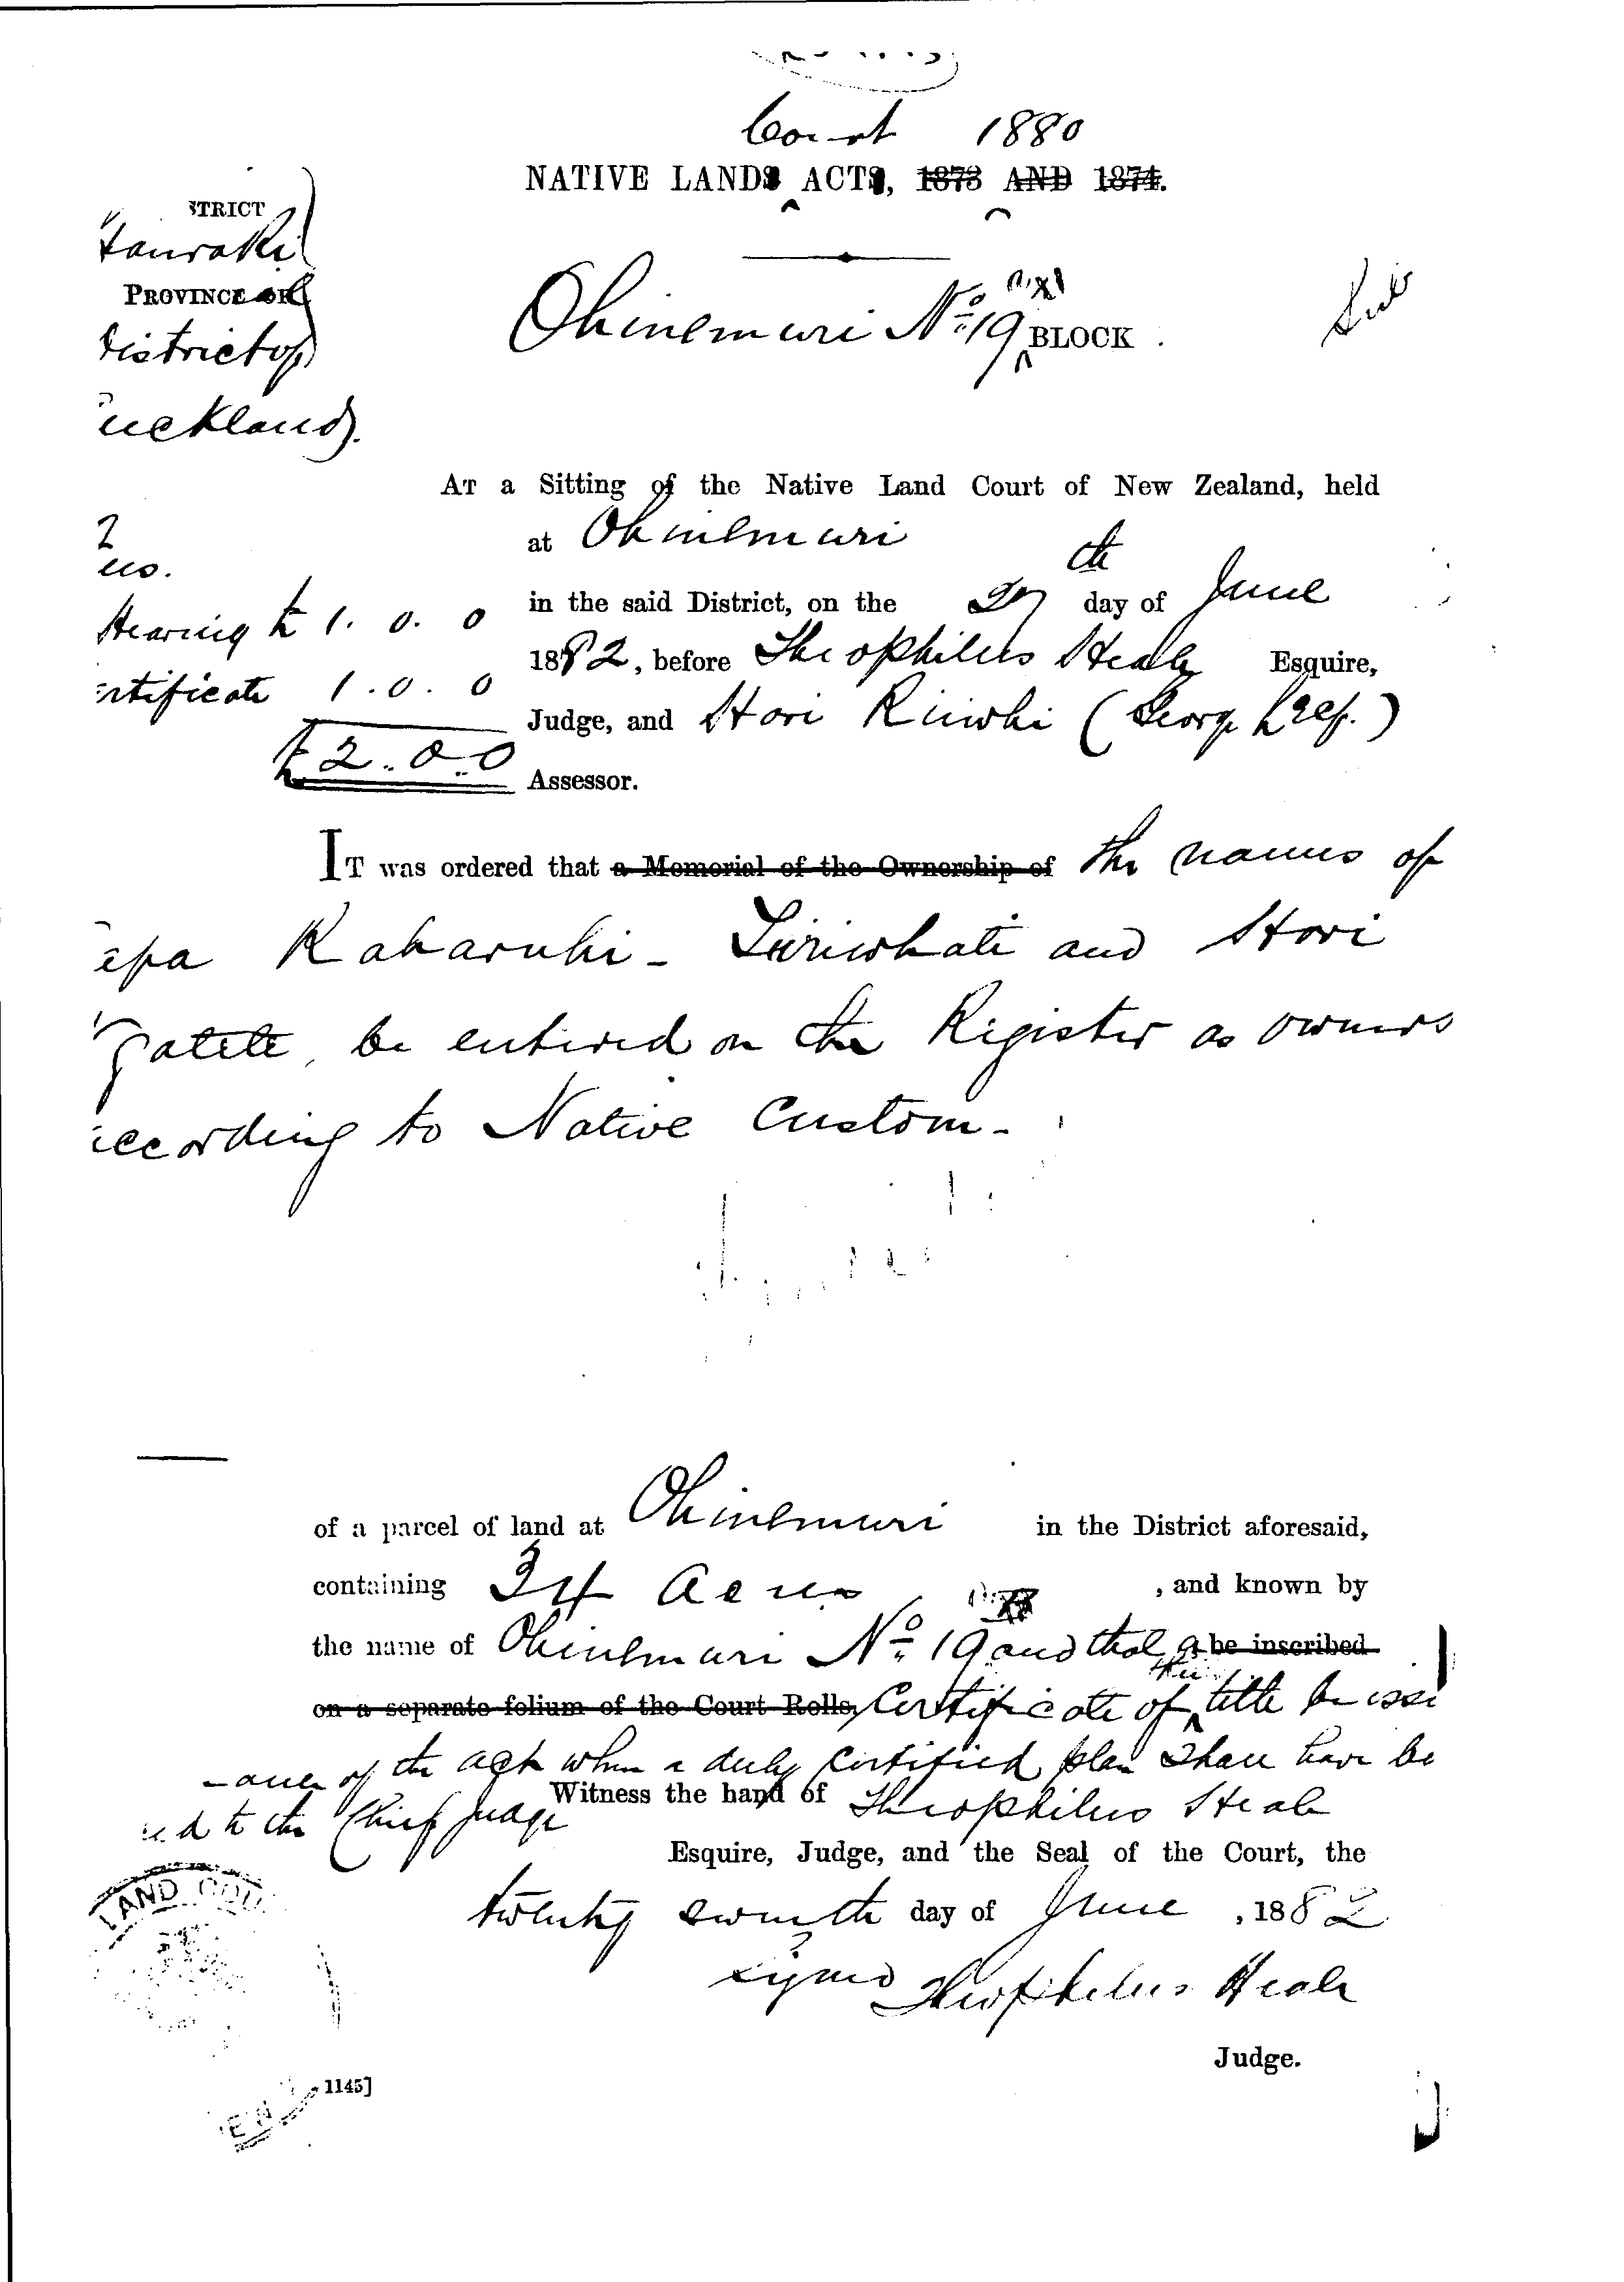 Court 1880
NATIVE LANDS ACTS, 1873 AND 1874.
STRICT
Hauraki
PROVINCE OF
District of
uckland).
Ohinemuri No. 19 BLOCK
AT a Sitting of the Native Land Court of New Zealand, held
at Ohinemuri
in the said District, on the 27th day of June
1882, before Theophilus Heale Esquire,
Judge, and Hori Riiwhi (George )
Assessor.
Hearing £ 1. 0. 0
rtificate 1. 0. 0
£2. 0. 0
IT was ordered that a Memorial of the Ownership of the names of
epa Kaharuhi - Tiriwhati and Hori
gatete be entered on the Register as owners
ccording to Native Custom -
of a parcel of land at Ohinemuri in the District aforesaid,
containing 34 acres, and known by
the name of Ohinemuri No. 19 and that a be inscribed
on a separate folium of the Court Rolls, Certificate of their title be issu
-ance of the act when a duly certified plan shall have be
ed to the Chief Judge
Witness the hand of Theophilus Heale
Esquire, Judge, and the Seal of the Court, the
twenty seventh day of June, 1882
signed Theophilus Heale
Judge.
LAND COU
1145]